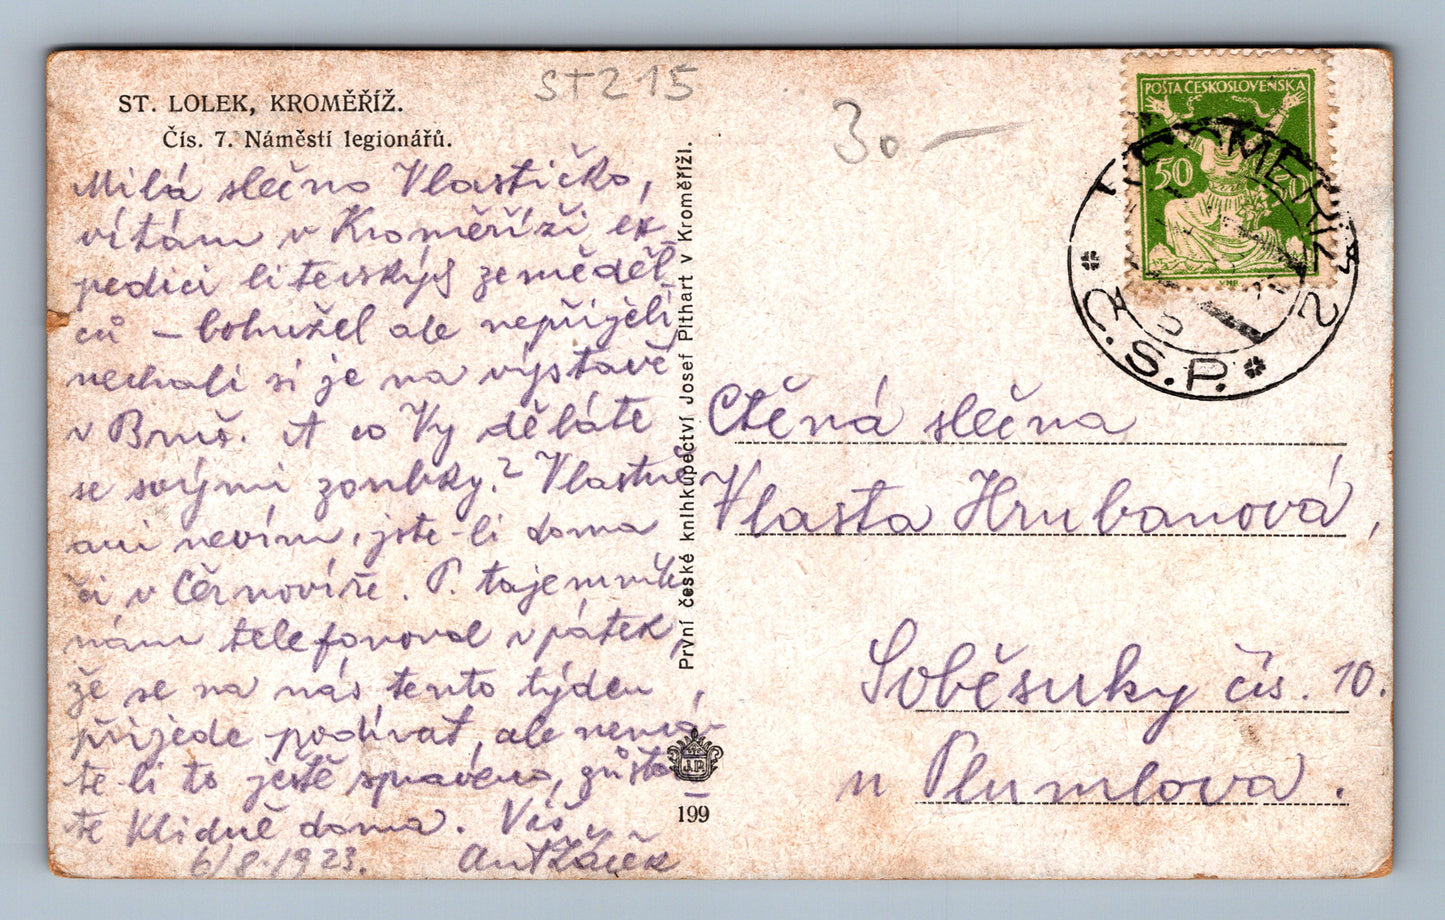 ST215
30-
ST. LOLEK, KROMĚŘÍŽ.
Čís. 7. Náměstí legionářů.
Milá slečno Vlastičko,
vítám v Kroměříži ex
pedici litevských zeměděl
ců – bohužel ale nepřijeli,
nechali si je na výstavě
v Brně. A co Vy děláte
se svými zoubky? Vlastně
ani nevím, jste-li doma
či v Černovíře. P. tajemník
nám telefonoval v pátek,
že se na nás tento týden
přijede podívat, ale nemá-
te-li to ještě spraveno, zůsta
te klidně doma. Váš
6/8.1923. Ant Žáček
První české knihkupectví Josef Plthart v Kroměříži.
J.P.
199
POŠTA ČESKOSLOVENSKA
50 50
KROMĚŘÍŽ 2
Č.S.P.
Ctěná slečna
Vlasta Hrubanová,
Soběsuky čís. 10.
u Plumlova.